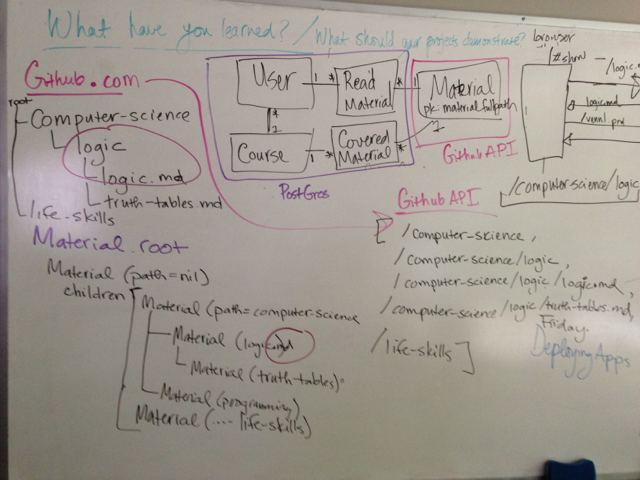 What have you learned? / What should our projects demonstrate?
Github.com
root
Computer-science
logic
logic.md
truth-tables.md
life-skills
User
1
*
Read Material
*
1
Material
pk: material_fullpath
*
2
Course
1
*
Covered Material
*
1
PostGres
Github API
browser
#show
/logic.
logic.md
/computer-science/logic
Github API
[ /computer-science,
/computer-science/logic,
/computer-science/logic/logic.md,
/computer-science/logic/truth-tables.md,
/life-skills ]
Friday
Deploying Apps
Material.root
Material (path=nil)
children
Material (path=computer-science
Material (logic.md
Material (truth-tables)
Material (programming)
Material (.... life-skills)